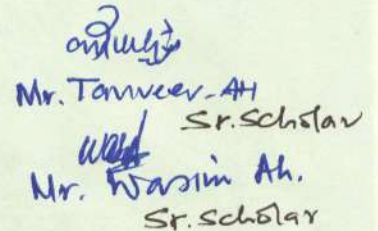 Mr. Tanveer-AH
Sr. Scholar
Mr. Wasim Ah.
Sr. Scholar